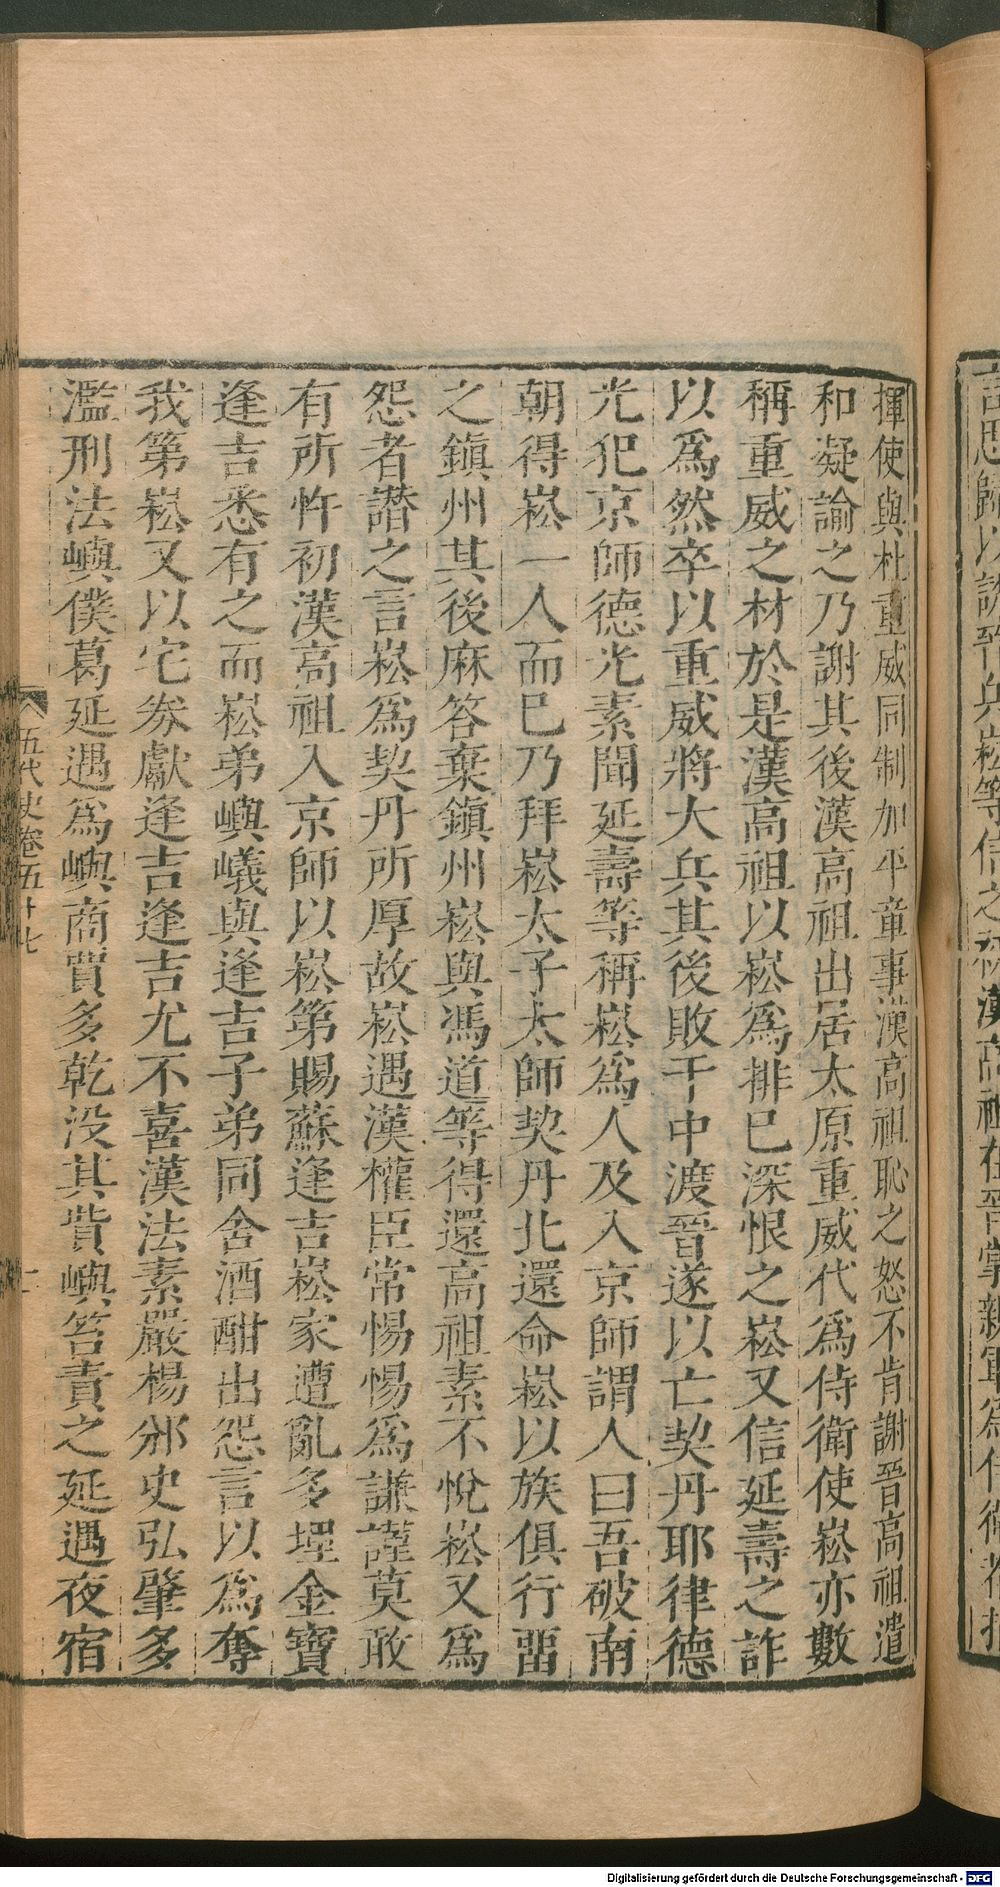 揮使與杜重威同制加平章事漢高祖恥之怒不肯謝晉高祖遣
和凝諭之乃謝其後漢高祖出居太原重威代爲侍衛使崧亦數
稱重威之材於是漢高祖以崧爲排已深恨之崧又信延壽之詐
以爲然卒以重威將大兵其後敗于中渡晉遂以亡契丹耶律德
光犯京師德光素聞延壽等稱崧爲人及入京師謂人曰吾破南
朝得崧一人而已乃拜崧太子太師契丹北還命崧以族俱行畱
之鎮州其後麻答棄鎮州崧與馮道等得還高祖素不悅崧又爲
怨者譖之言崧爲契丹所厚故崧遇漢權臣常惕惕爲謙謹莫敢
有所忤初漢高祖入京師以崧第賜蘇逢吉崧家遭亂多埋金寶
逢吉悉有之而崧弟嶼㠖與逢吉子弟同舍酒酣出怨言以爲奪
我第崧又以宅券獻逢吉逢吉尤不喜漢法素嚴楊邠史弘肇多
濫刑法嶼僕葛延遇爲嶼商賈多乾没其貲嶼笞責之延遇夜宿
五代史卷五十七
言思歸以說晉兵崧等信之初漢高祖在晉掌親軍爲侍衛都指
Digitalisierung gefördert durch die Deutsche Forschungsgemeinschaft - DFG